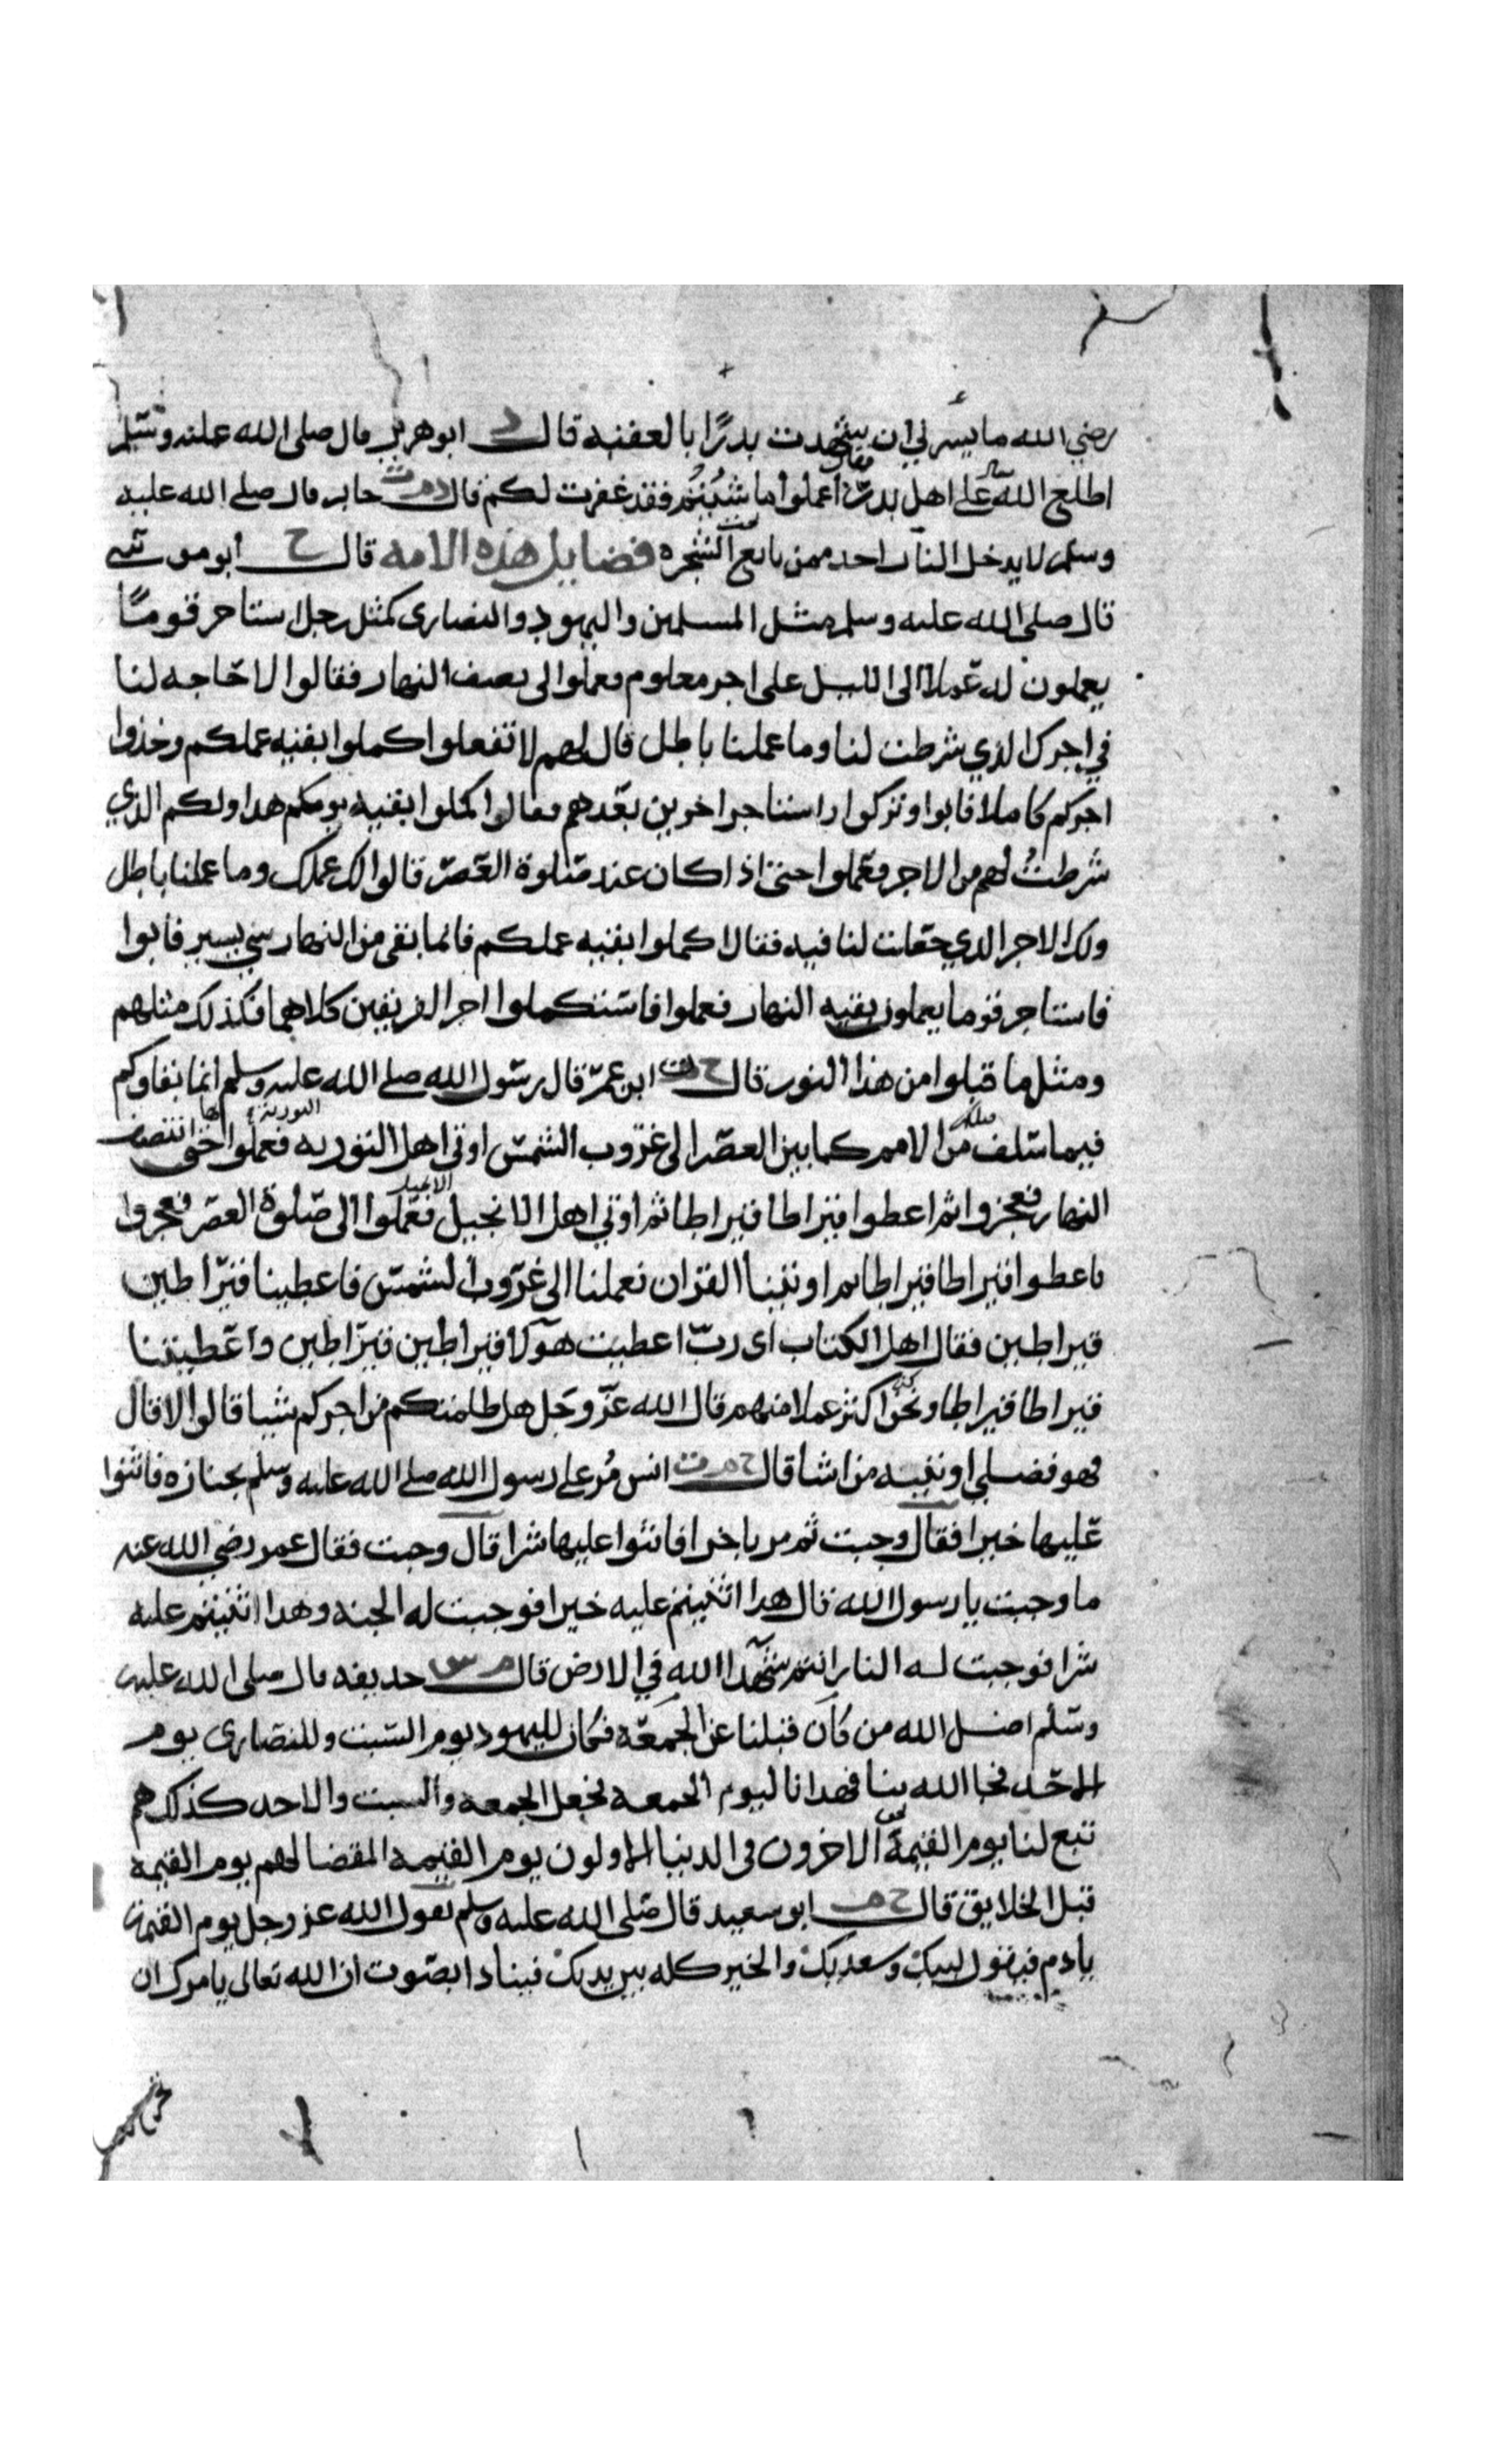 رضي الله ما يسرني ان شهدت بدرًا بالعقبه قال د ابو هريره قال صلى الله عليه وسلم
اطلع الله على اهل بدر فقال اعملوا ما شيتم فقد غفرت لكم قال د م ت جابر قال صلى الله عليه
وسلم لا يدخل النار احد ممن بايع تحت الشجره فضايل هذه الامه قال خ ابو موسى
قال صلى الله عليه وسلم مثل المسلمين واليهود والنصارى كمثل رجل استاجر قومًا
يعملون له عملا الى الليل على اجر معلوم فعملوا الى نصف النهار فقالوا لا حاجه لنا
في اجرك الذي شرطت لنا وما عملنا باطل قال لهم لا تفعلوا اكملوا بقيه عملكم وخذوا
اجركم كاملا فابوا وتركوا واستاجر اخرين بعدهم فقال اكملوا بقيه يومكم هذا ولكم الذي
شرطتُ لهم من الاجر فعملوا حتى اذا كان عند صلوة العصر قالوا لك عملك وما عملنا باطل
ولك الاجر الذي جعلت لنا فيه فقال اكملوا بقيه عملكم فانما بقى من النهار شي يسير فابوا
فاستاجر قوما يعملون بقيه النهار فعملوا فاستكملوا اجر الفريقين كلاهما فكذلك مثلهم
ومثل ما قبلوا من هذا النور قال خ ت ابن عمر قال رسول الله صلى الله عليه وسلم انما بقاوكم
فيما سلف قبلكم من الامم كما بين العصر الى غروب الشمس اوتي اهل التوريه التورية فعملوا بها حتى انتصف
النهار فعجزوا ثم اعطوا قيراطا قيراطا ثم اوتي اهل الانجيل الانجيل فعملوا الى صلوة العصر فعجزوا
فاعطوا قيراطا قيراطا ثم اوتينا القران فعملنا الى غروب الشمس فاعطينا قيراطين
قيراطين فقال اهل الكتاب اى ربّ اعطيت هولا قيراطين قيراطين واعطيتنا
قيراطا قيراطا ونحن كنا اكثر عملا منهم قال الله عز وجل هل ظلمتكم من اجركم شيا قالوا لا قال
فهو فضلي اوتيه من اشا قال خ م ت انس مُر على رسول الله صلى الله عليه وسلم بجنازه فاثنوا
عليها خيرا فقال وجبت ثم مر باخرا فاثنوا عليها شرا قال وجبت فقال عمر رضي الله عنه
ما وجبت يا رسول الله قال هذا اثنيتم عليه خيرا فوجبت له الجنه وهذا اثنيتم عليه
شرا فوجبت له النار انتم شهدا الله في الارض قال م س حذيفه قال صلى الله عليه
وسلم اضل الله من كان قبلنا عن الجمعه فكان لليهود يوم السبت وللنصارى يوم
الاحد فجا الله بنا فهدانا ليوم الجمعه فجعل الجمعه والسبت والاحد كذلك هم
تبع لنا يوم القيمة نحن الاخرون فى الدنيا الاولون يوم القيمه المقضا لهم يوم القيمة
قبل الخلايق قال خ م ابو سعيد قال صلى الله عليه وسلم يقول الله عز وجل يوم القيمة
يادم فيقول لبيك وسعديك والخير كله بيديك فينادا بصوت ان الله تعالى يامرك ان